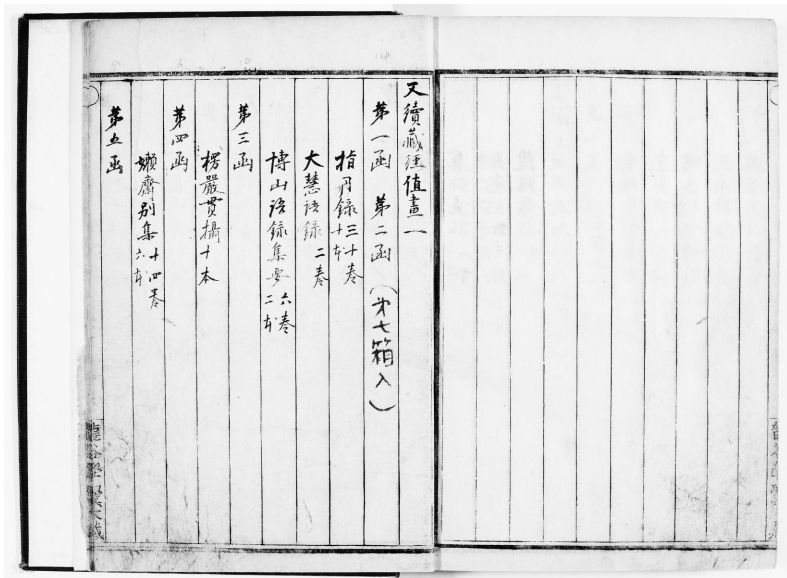 又續藏經值畫一
第一函 第二函 (第七箱入)
指月錄三十卷 十本
大慧語錄 二卷
博山語錄集要 六卷 二本
第三函
楞嚴貫攝十本
第四函
嬾齋別集十四卷 六本
第五函